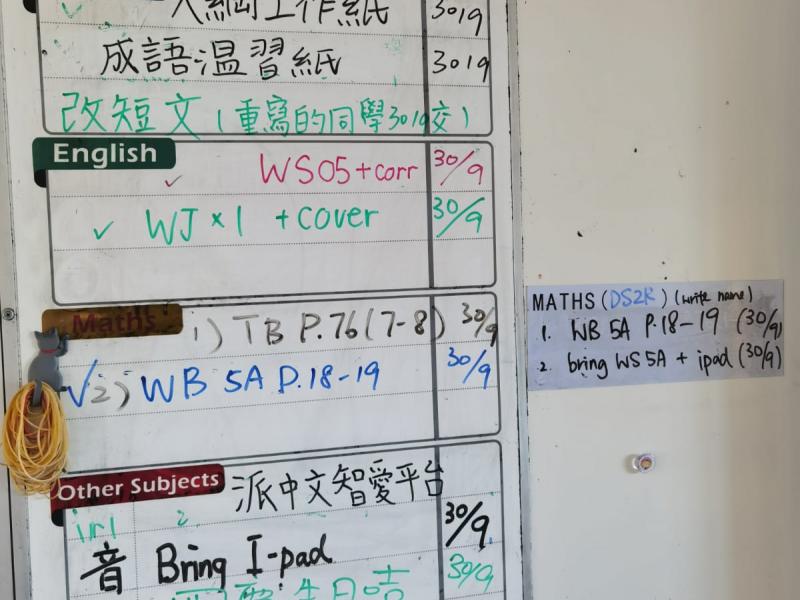 大綱工作紙 30/9
成語温習紙 30/9
改短文(重寫的同學30/9交)
English
✓ WS05+corr 30/9
✓ WJ×1 +cover 30/9
Maths
1) TB P.76(7-8) 30/9
√2) WB 5A P.18-19 30/9
Other Subjects
派中文智愛平台
音 Bring I-pad 30/9
30/9
MATHS (DS2K) (write name)
1. WB 5A P.18-19 (30/9)
2. bring WS 5A + ipad (30/9)